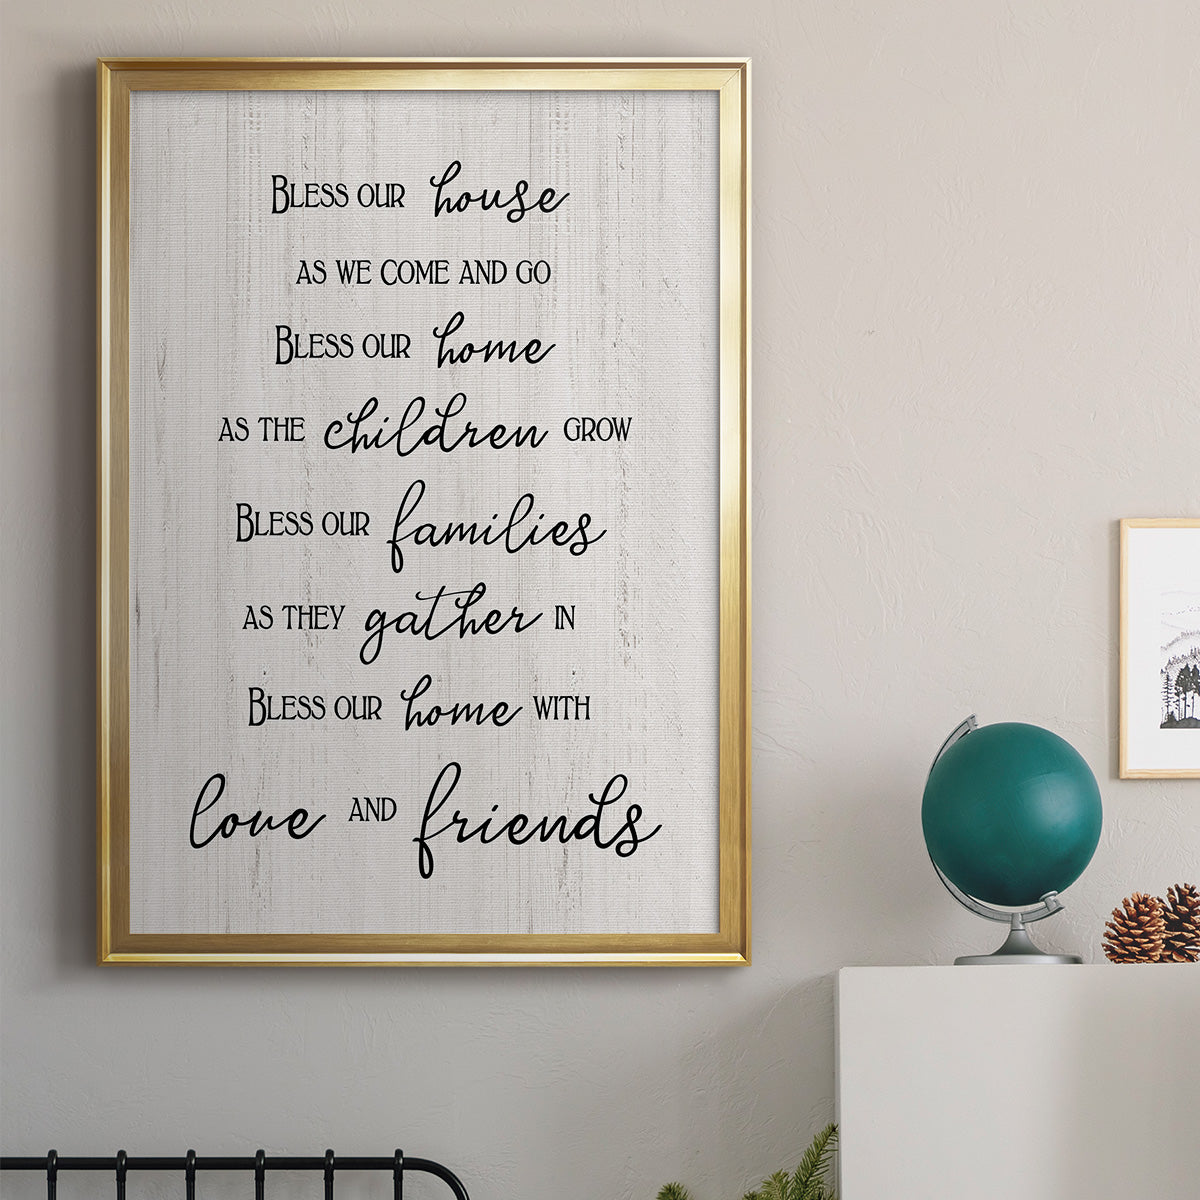 Bless our house
as we come and go
Bless our home
as the children grow
Bless our families
as they gather in
Bless our home with
love and friends